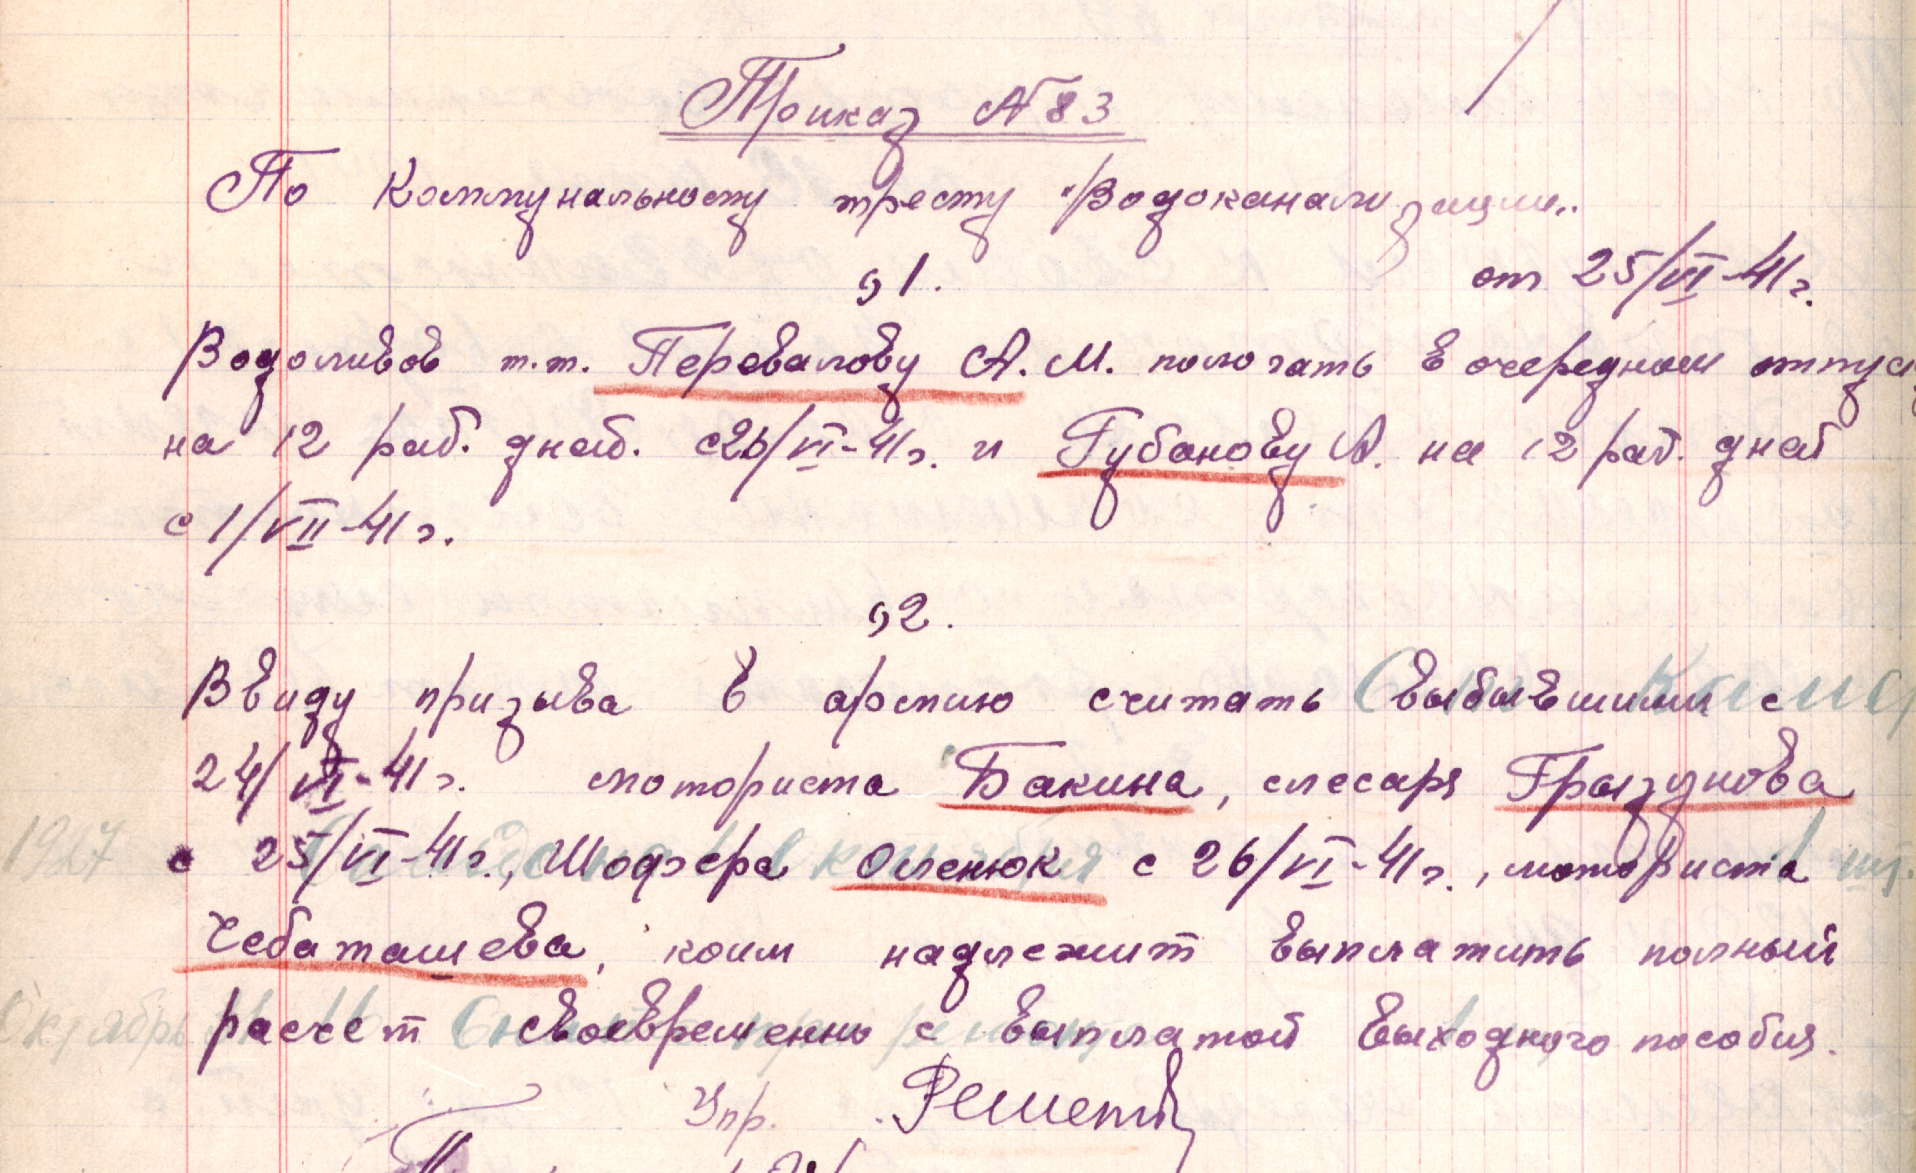 Приказ № 83
По Коммунальному тресту "Водоканализации"
§1.
от 25/VI-41 г.
Водоливов т.т. Перевалову А.М. пологать в очередном отпуск
на 12 раб. дней. с 26/VI-41 г. и Губанову А. на 12 раб. дней
с 1/VII-41 г.
§2.
Ввиду призыва в армию считать выбывшими с
24/VI-41 г. моториста Бакина, слесаря Грызунова
с 25/VI-41 г., Шофера Оленюк с 26/VI-41 г., моториста
Чебаташева, коим надлежит выплатить полный
расчет своевременно с выплатой выходного пособия.
Упр.
1927
Октябрь